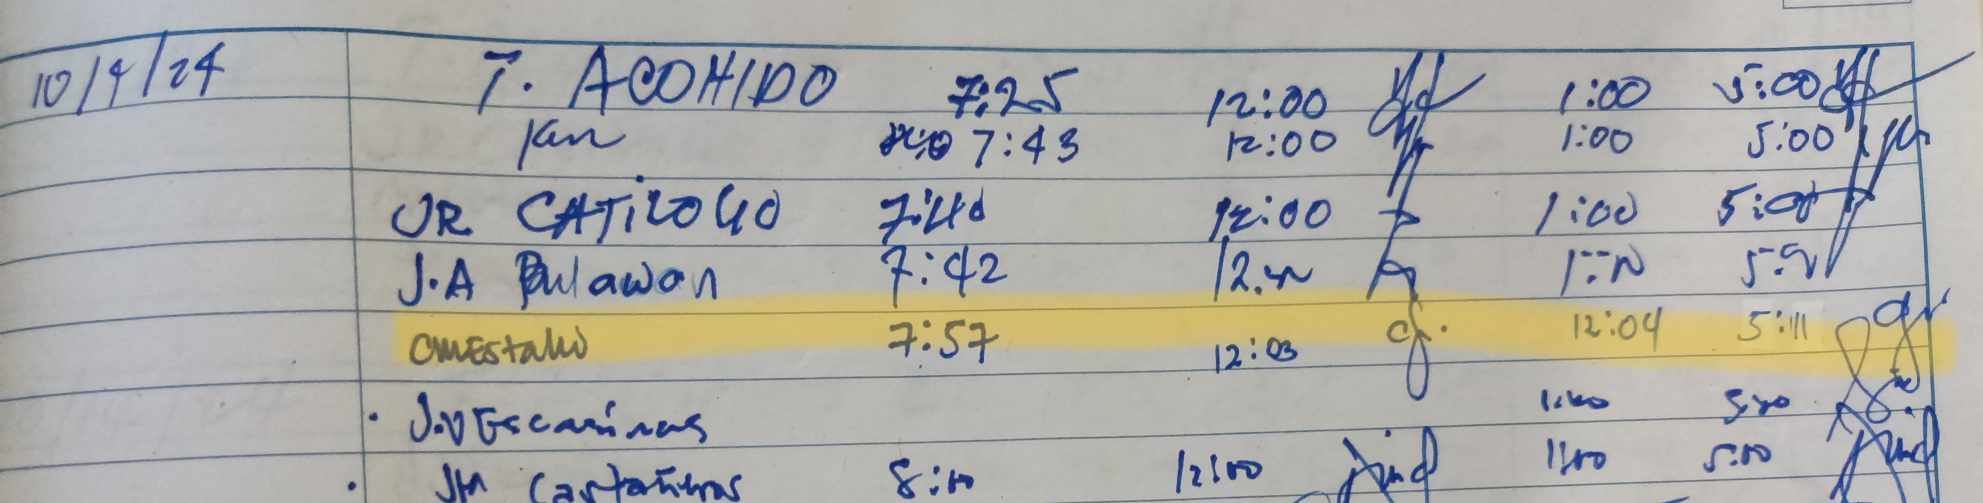 10/9/24 T. ACOHIDO 7:25 12:00 1:00 5:00
Ken 7:43 12:00 1:00 5:00
JR CATILOGO 7:40 12:00 1:00 5:00
J.A Bulawan 7:42 12:00 1:00
7:57 12:03 12:04 5:11
J.V Escariñas 1:00 5:00
JM Castañeros 8:00 12:00 1:00 5:00